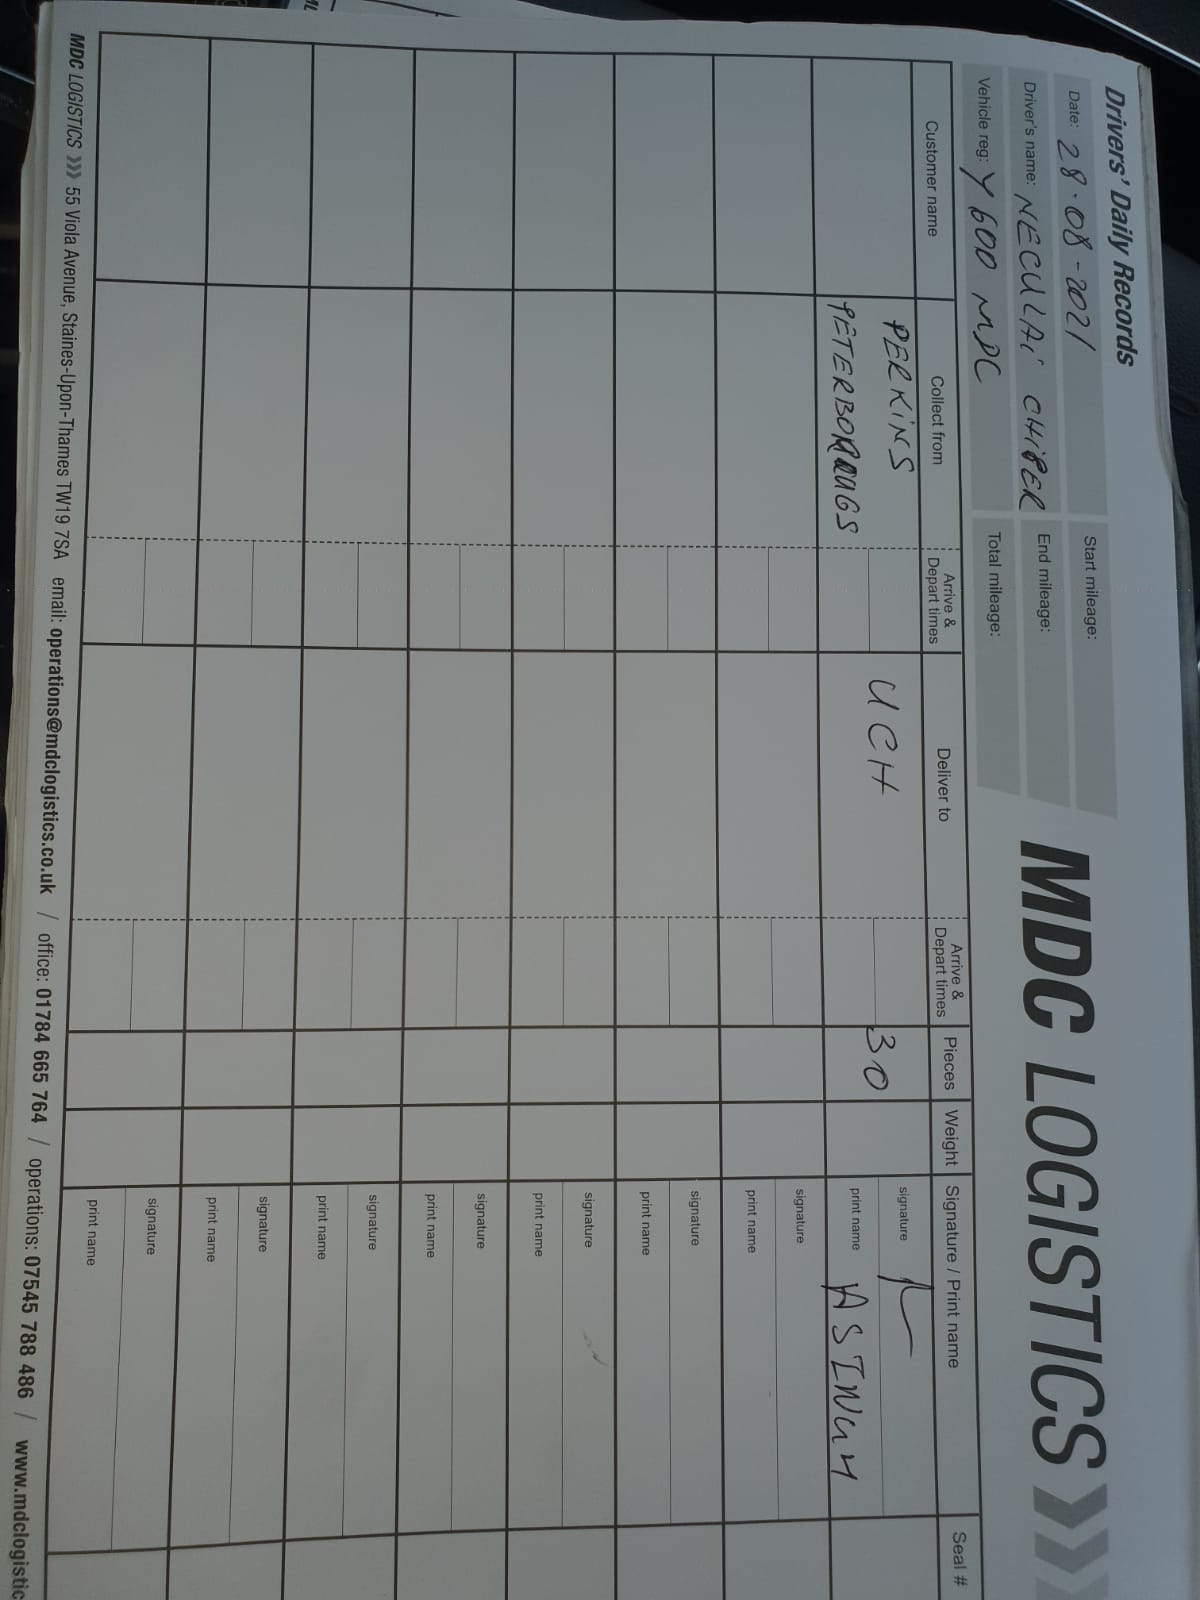 Drivers' Daily Records
Date: 28-08-2021
Start mileage:
Driver's name: NECULAi CHiPER
End mileage:
Vehicle reg: Y600 MDC
Total mileage:
MDC LOGISTICS
Customer name
Collect from
Arrive & Depart times
Deliver to
Arrive & Depart times
Pieces
Weight
Signature / Print name
Seal #
PERKiNS
UCH
30
signature
PETERBO
print name
signature
print name
signature
print name
signature
print name
signature
print name
signature
print name
signature
print name
signature
print name
MDC LOGISTICS 55 Viola Avenue, Staines-Upon-Thames TW19 7SA email: operations@mdclogistics.co.uk / office: 01784 665 764 / operations: 07545 788 486 / www.mdclogistic